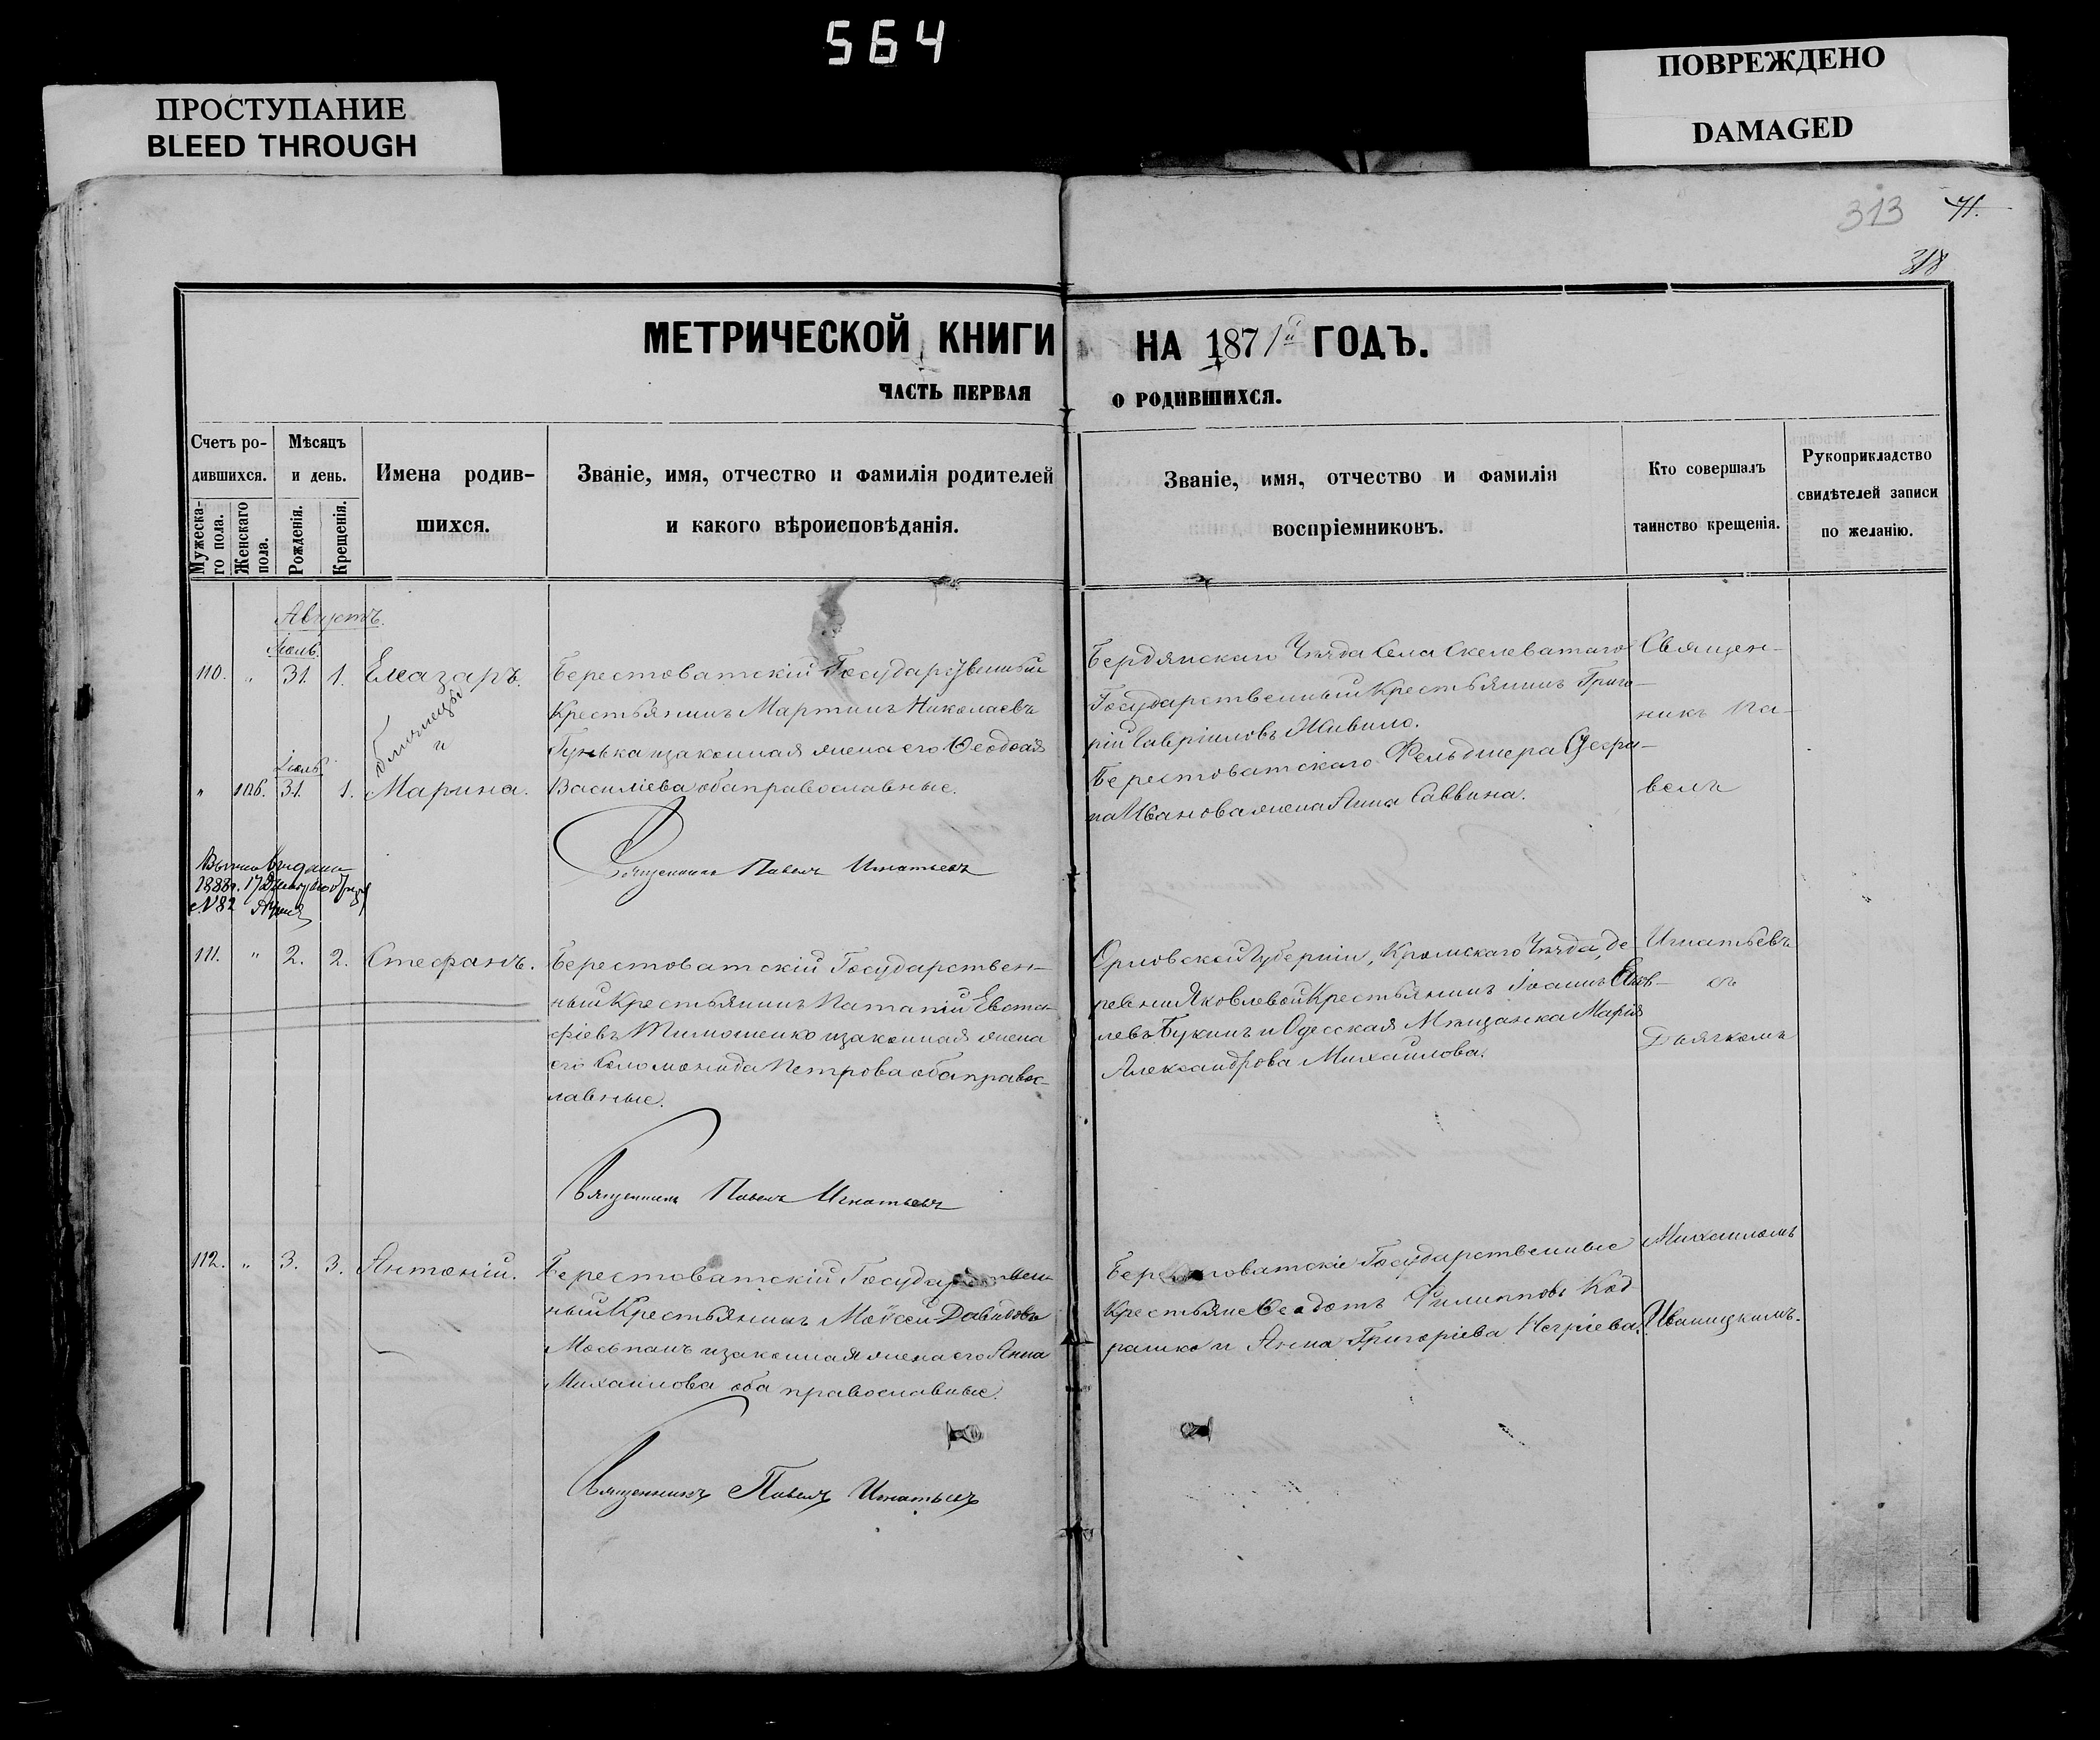 564
ПРОСТУПАНИЕ
BLEED THROUGH
ПОВРЕЖДЕНО
DAMAGED
313 71.
318
МЕТРИЧЕСКОЙ КНИГИ НА 1871й ГОДЪ.
ЧАСТЬ ПЕРВАЯ О РОДИВШИХСЯ.
Счетъ ро-
дившихся.
Мужеска-
го пола.
Женскаго
пола.
Мѣсяцъ
и день.
Рожденія.
Крещенія.
Имена родив-
шихся.
Званіе, имя, отчество и фамилія родителей
и какого вѣроисповѣданія.
Званіе, имя, отчество и фамилія
воспріемниковъ.
Кто совершалъ
таинство крещенія.
Рукоприкладство
свидѣтелей записи
по желанію.
Августъ.
Іюль.
110. " 31. 1. Елеазаръ.
близнецы
и
Іюль
" 106. 31. 1. Марина.
Берестоватскій Государственный
Крестьянинъ Мартинъ Николаевъ
Гунька и законная жена его Ѳеодосія
Василіева оба православные.
Священникъ Павелъ Игнатьевъ
Бердянскаго Уѣзда Села Скелеватаго
Государственный Крестьянинъ Григо-
рій Гавріиловъ Живило.
Берестоватскаго Фельдшера Стефа-
на Иванова жена Анна Саввина.
Священ-
никъ Па-
велъ
1888г. 17
№82
111. " 2. 2. Стефанъ.
Берестоватскій Государствен-
ный Крестьянинъ Ипатій Евста-
фіевъ Тимошенко и законная жена
его Соломонида Петрова оба право-
лавные.
Священникъ Павелъ Игнатьевъ
Орловской Губерніи, Кромскаго Уѣзда, де-
ревни Яковлевой Крестьянинъ Іоаннъ Яков-
левъ Букинъ и Одесская Мѣщанка Марія
Александрова Михайлова.
Игнатьевъ
съ
Дьячкомъ
112. " 3. 3. Антоній.
Берестоватскій Государствен-
ный Крестьянинъ Моѵсей Давидовъ
Мосьпанъ и законная жена его Анна
Михаилова оба православные.
Священникъ Павелъ Игнатьевъ
Берестоватскіе Государственные
Крестьяне Ѳеодотъ Филипповъ Код-
рашко и Анна Григоріева Негріева.
Михаиломъ
Иваницкимъ.